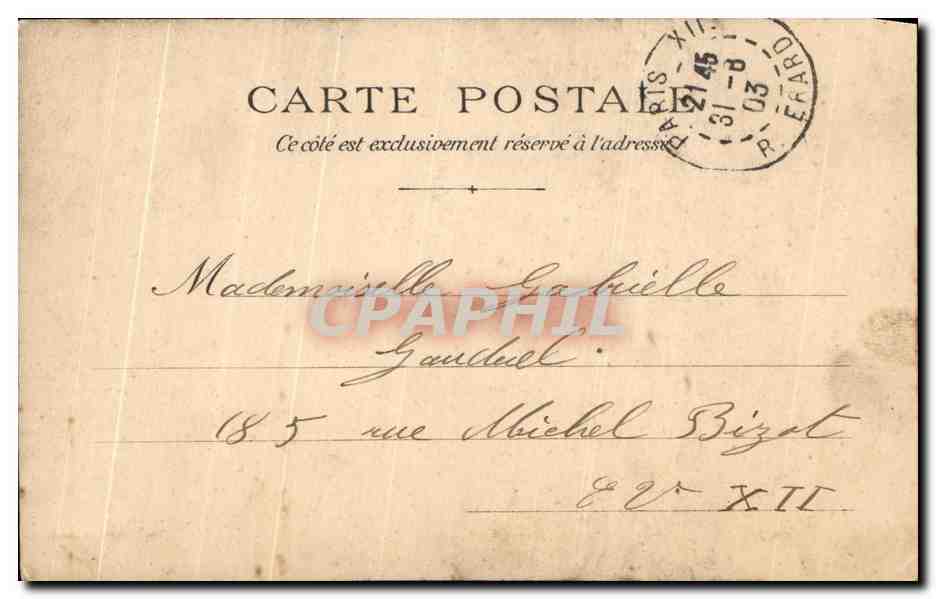 CARTE POSTALE
Ce côté est exclusivement réservé à l'adresse
PARIS - XII
21 45
31 - 8
03
R. ERARD
Mademoiselle Gabrielle
CPAPHIL
Gauduel.
185 rue Michel Bizot
E V. XII